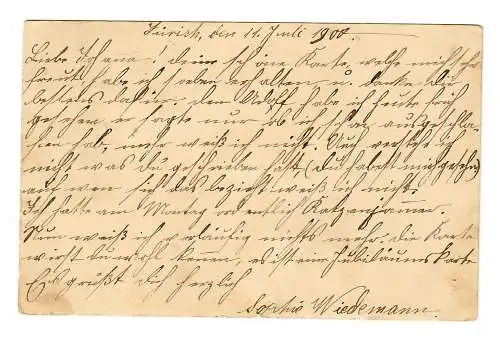 Zürich, den 11. Juli 1900.
Liebe Johanna! deine schöne Karte, welche mich sehr
freut habe ich soeben erhalten u. danke dir
bestens dafür. Den Adolf habe ich heute früh
gesehen er sagte nur ob ich schon ausgeschla-
fen hab, mehr weiß ich nicht. Auch verstehe ich
nicht was du geschrieben hast (du habest mich gesehen)
auf wen sich das bezieht weiß ich nicht.
Ich hatte am Montag ordentlich Katzenjammer.
Nun weiß ich vorläufig nichts mehr, die Karte
wirst du wohl kennen, es ist eine Jubiläumskarte
Es grüßt dich herzlich
Sophie Wiedemann.